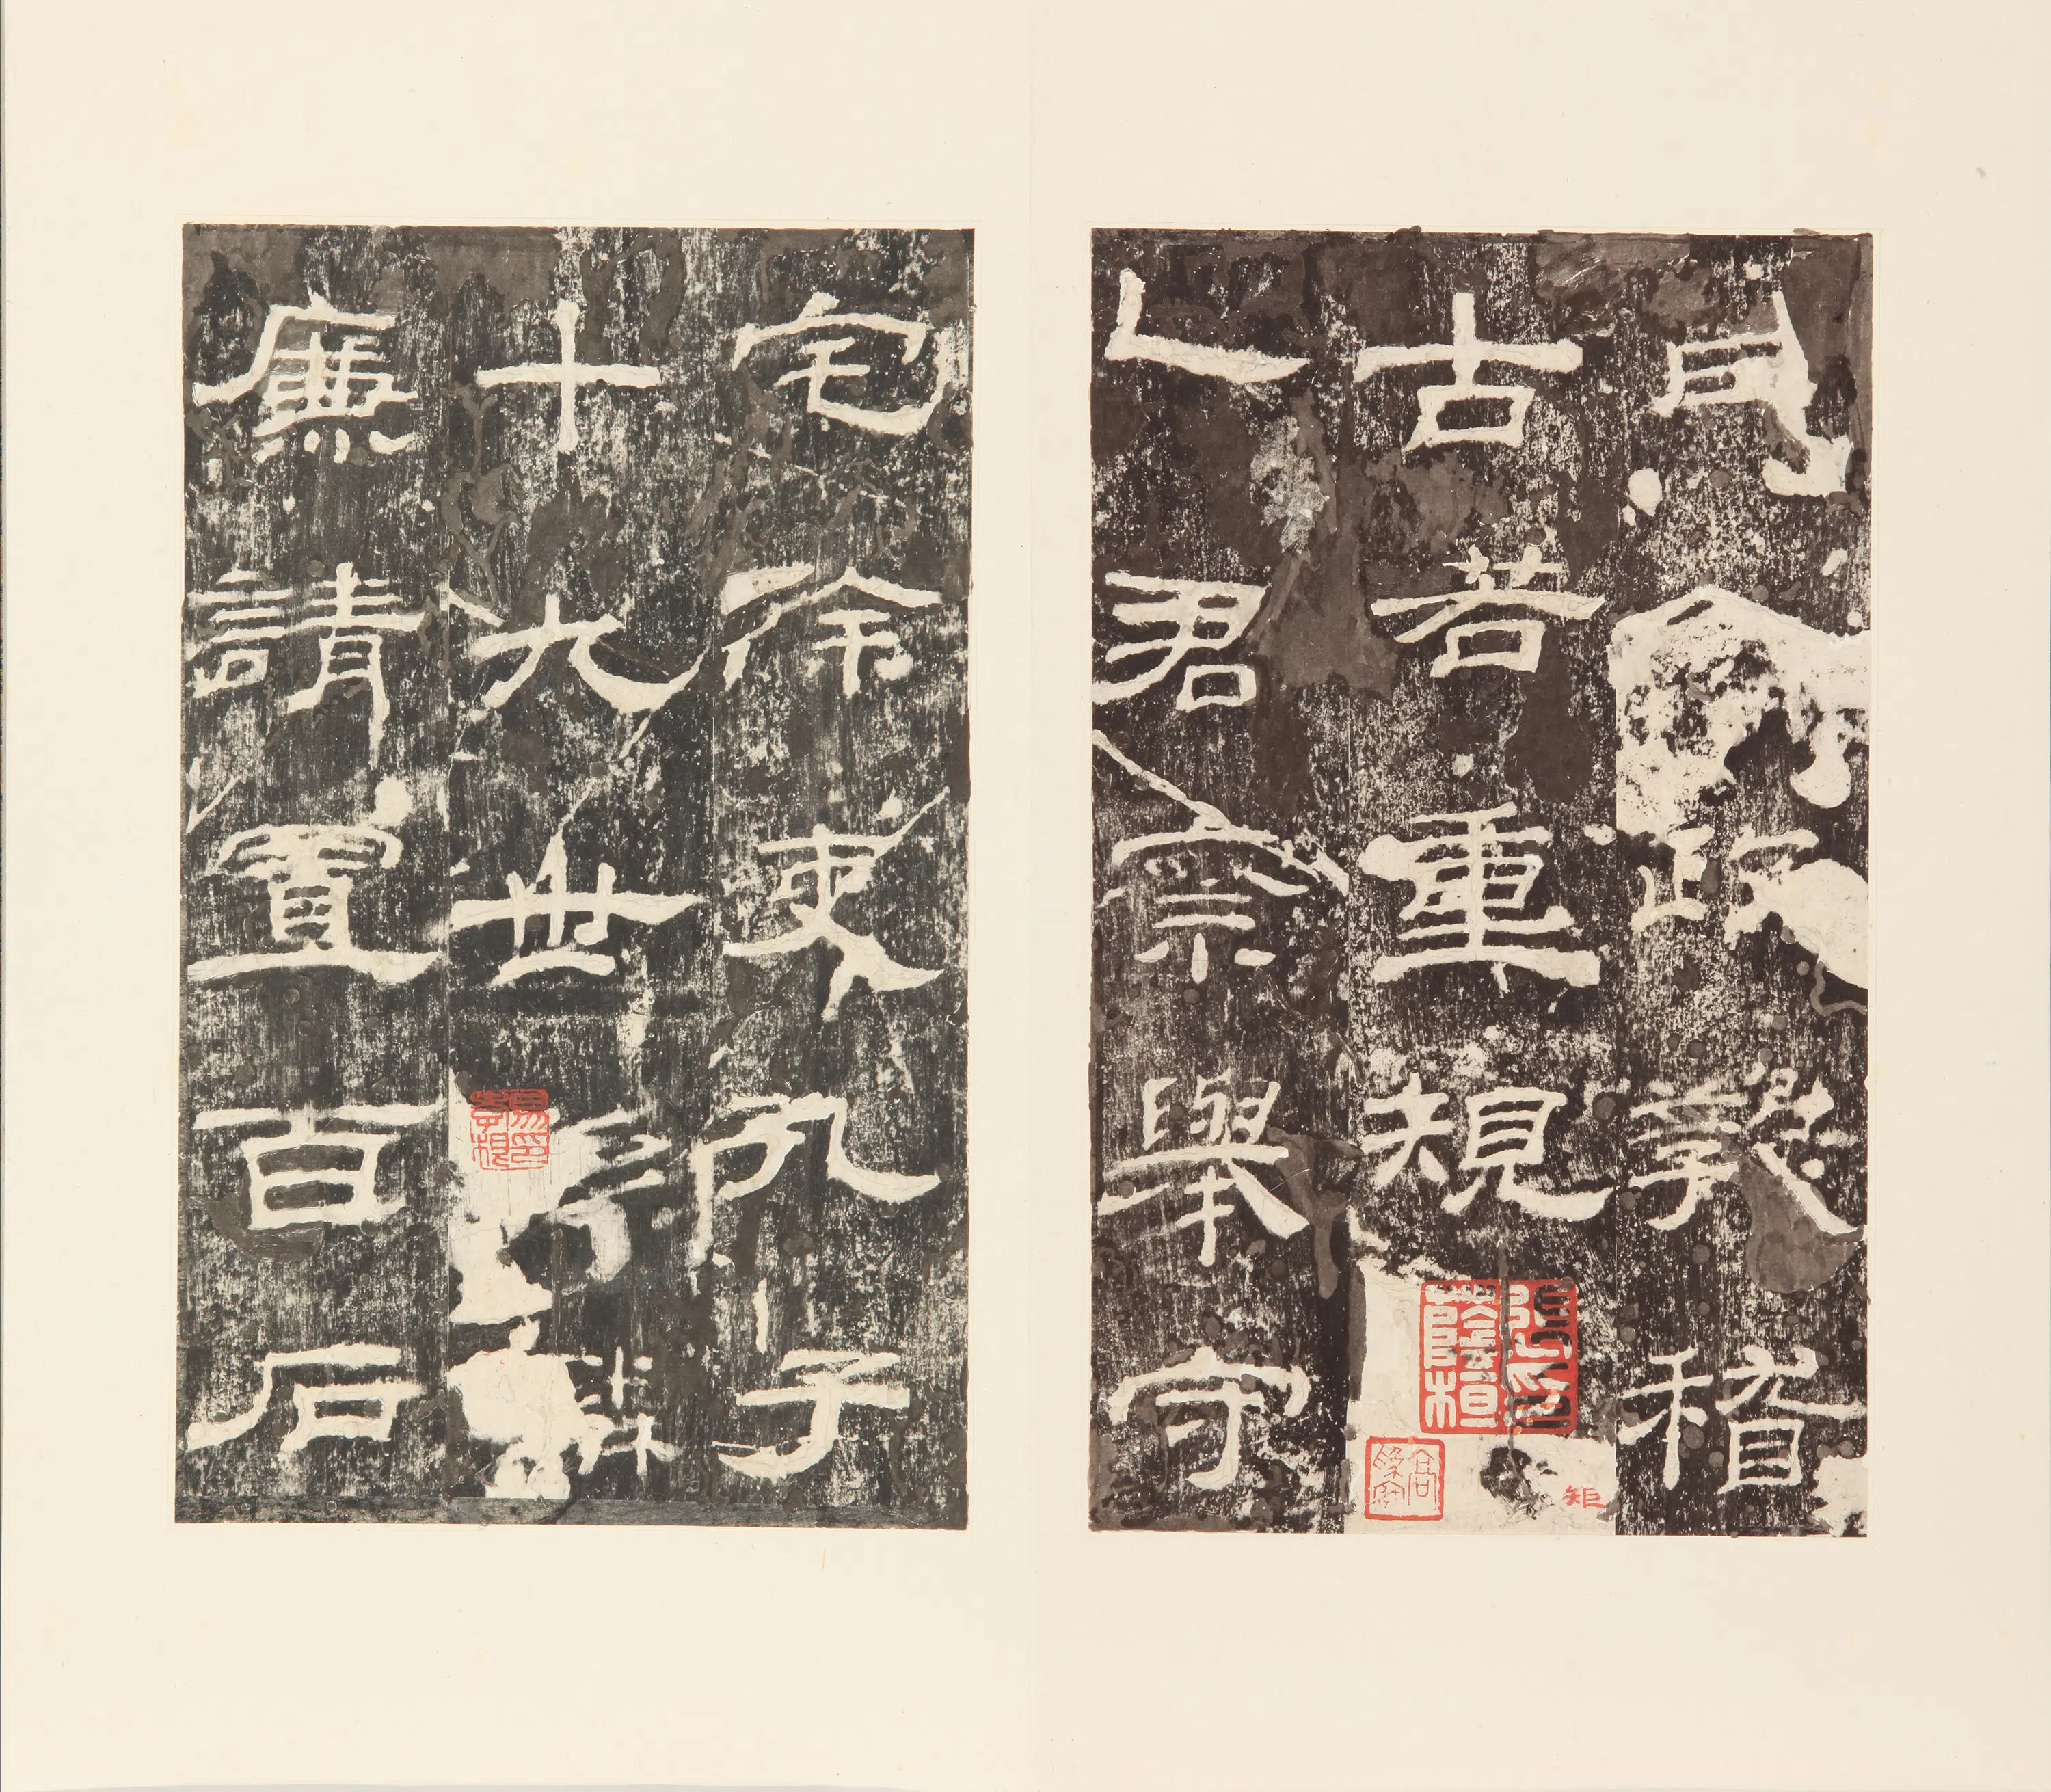 政教稽
古若重規
矩
乙君察舉守
宅除吏孔子
十九世孫麟
廉請置百石